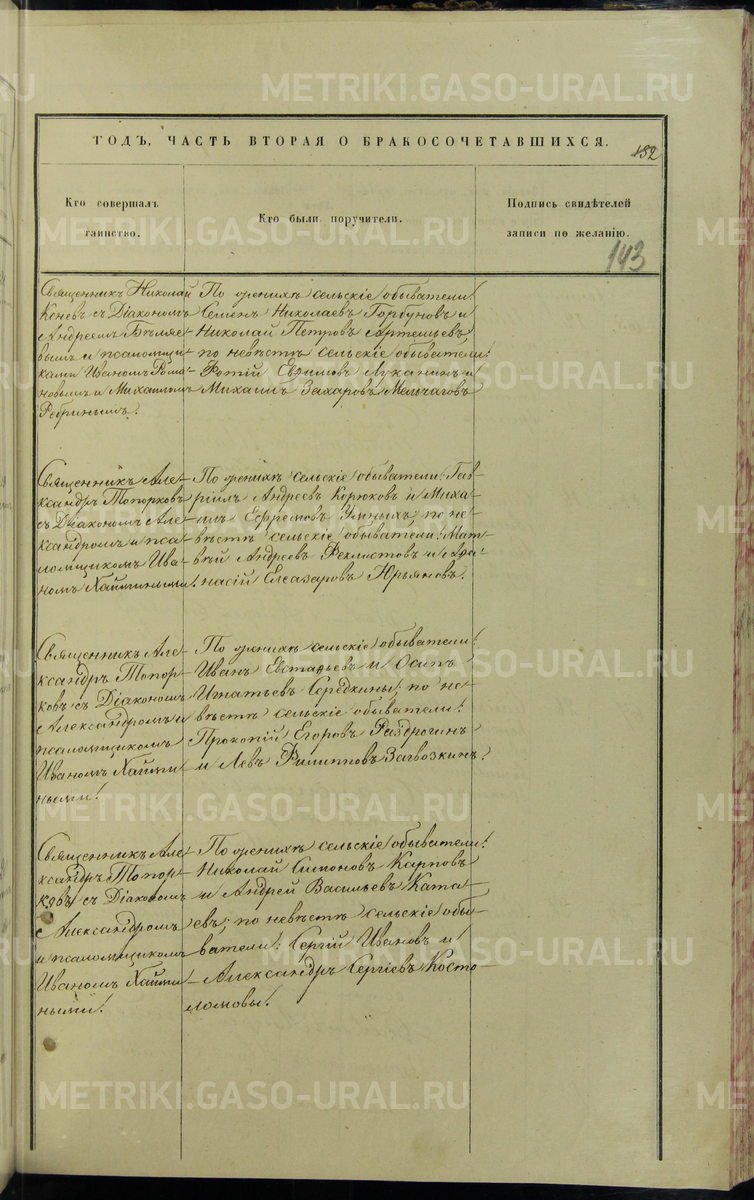 ГОДЪ, ЧАСТЬ ВТОРАЯ О БРАКОСОЧЕТАВШИХСЯ.
152
Кто совершалъ
таинство.
Кто были поручители.
Подпись свидѣтелей
записи по желанію.
143
Священникъ Николай
Коневъ съ Діакономъ
Андреемъ Бѣляе-
вымъ и псаломщи-
ками Иваномъ Рома-
новымъ и Михаиломъ
Редринымъ.
По женихѣ сельскіе обыватели:
Семенъ Николаевъ Горбуновъ и
Николай Петровъ Артемьевъ,
по невѣстѣ сельскіе обыватели:
Фотій Евфимовъ Луканинъ и
Михаилъ Захаровъ Мельчаговъ
Священникъ Але-
ксандръ Топорковъ
съ Діакономъ Але-
ксандромъ и пса-
ломщикомъ Ива-
номъ Хаймиными.
По женихѣ сельскіе обыватели: Гав-
ріилъ Андреевъ Корюковъ и Миха-
илъ Ефремовъ Умныхъ, по не-
вѣстѣ сельскіе обыватели: Мат-
вѣй Андреевъ Феклистовъ и Афа-
насій Елеазаровъ Юрьяновъ.
Священникъ Але-
ксандръ Топор-
ковъ съ Діакономъ
Александромъ и
псаломщикомъ
Иваномъ Хайми-
ными.
По женихѣ сельскіе обыватели:
Иванъ Евстафьевъ и Осипъ
Игнатьевъ Середкины; по не-
вѣстѣ сельскіе обыватели:
Прокопій Егоровъ Раздрогинъ
и Левъ Филипповъ Загвозкинъ.
Священникъ Але-
ксандръ Топор-
ковъ съ Діакономъ
Александромъ
и псаломщикомъ
Иваномъ Хайми-
ными.
По женихѣ сельскіе обыватели:
Николай Симоновъ Карповъ
и Андрей Васильевъ Ката-
евъ; по невѣстѣ сельскіе обы-
ватели: Сергій Ивановъ и
Александръ Сергіевъ Косто-
ломовы.
METRIKI.GASO-URAL.RU